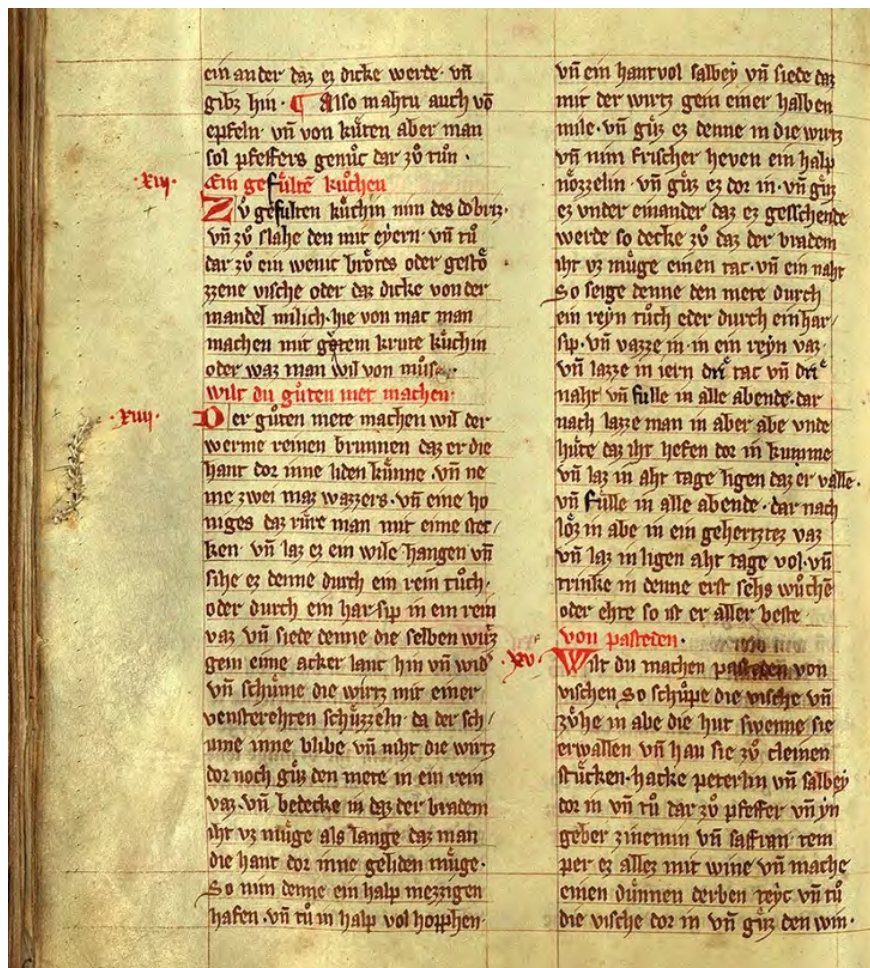 ein ander daz ez dicke werde · vn̄
gibz hin · ¶ Also mahtu auch vō
epfeln · vn̄ von kuͤten aber man
sol pfeffers genuͦc dar zuͦ tuͦn ·
·xiij· Ein gefuͤltē kuͦchen
Zvͦ gefulten kuͦchin nim des dobriz·
vn̄ zuͦ slahe den mit eyern · vn̄ tuͦ
dar zuͦ ein wenic broͤtes oder gestoͤ
zzene vische oder daz dicke von der
mandel milich · hie von mac man
machen mit guͦtem krute kuͦchin
oder waz man wil von muͦse·
wilt du guͦten met machen·
·xiiij· Der guͦten mete machen wil der
werme reinen brunnen daz er die
hant dor inne liden kuͤnne · vn̄ ne
me zwei maz wazzers · vn̄ eine ho
niges daz ruͤre man mit eime stec/
ken · vn̄ laz ez ein wile hangen vn̄
sihe ez denne durch ein rein tuͦch/
oder durch ein har sip in ein rein
vaz vn̄ siede denne die selben wirtz
gein eime acker lanc hin vn̄ wid᷑
vn̄ schuͤme die wirtz mit einer
vensterehten schuͤzzeln · da der sch/
ume inne blibe vn̄ niht die wirtz
dor noch giuz den mete in ein rein
vaz · vn̄ bedecke in daz der bradem
iht vz muͤge als lange daz man
die hant dor inne geliden muͤge·
So nim denne ein halp mezzigen
hafen · vn̄ tuͦ in halp vol hopphen·
vn̄ ein hantvol salbey vn̄ siede daz
mit der wirtz gein einer halben
mile · vn̄ giuz ez denne in die wirtz
vn̄ nim frischer heven ein halp
noͤzzelin · vn̄ giuz ez dor in · vn̄ giuz
ez vnder einander daz ez gesschende
werde so decke zuͦ daz der bradem
iht vz muͤge einen tac · vn̄ ein naht
So seige denne den mete durch
ein reyn tuͦch oder durch ein har/
sip · vn̄ vazze in · in ein reyn vaz·
vn̄ lazze in iern dri͛ tac vn̄ dri͛
naht vn̄ fulle in alle abende · dar
nach lazze man in aber abe vnde
huͤte daz iht hefen dor in kumme
vn̄ laz in aht tage ligen daz er valle·
vn̄ fuͤlle in alle abende · dar nach
loͤz in abe in ein gehertztez vaz
vn̄ laz in ligen aht tage vol · vn̄
trinke in denne erst sehs wuͦchē
oder ehte so ist er aller beste·
von pasteden·
·xv· Wilt du machen pasteden von
vischen So schuͤpe die vische vn̄
zvͤhe in abe die hut swenne sie
erwallen vn̄ hau sie zuͦ cleinen
stuͤcken · hacke peterlin vn̄ salbey
dor in vn̄ tuͦ dar zuͦ pfeffer vn̄ yn
geber zinemin vn̄ saffran · tem
per ez allez mit wine vn̄ mache
einen duͤnnen derben teyc vn̄ tuͦ
die vische dor in vn̄ giuz den win·